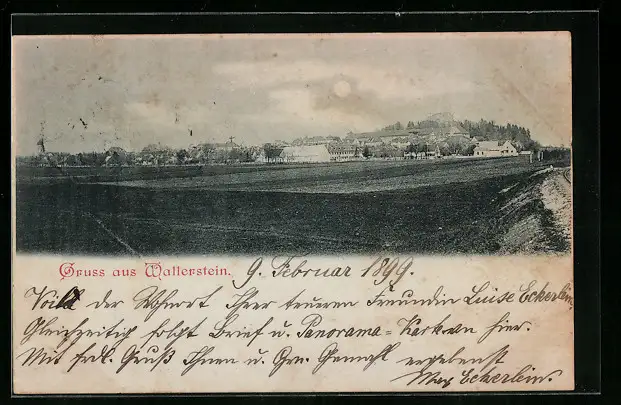 Gruss aus Wallerstein. 9. Februar 1899.
Voilà der Wohnort Ihrer treueren Freundin Luise Eckerlein,
Gleichzeitig folgt Brief u. Panorama-Karte von hier.
Mit frdl. Gruß Ihnen u. Hrn. Gemahl ergebenst
Max Eckerlein.